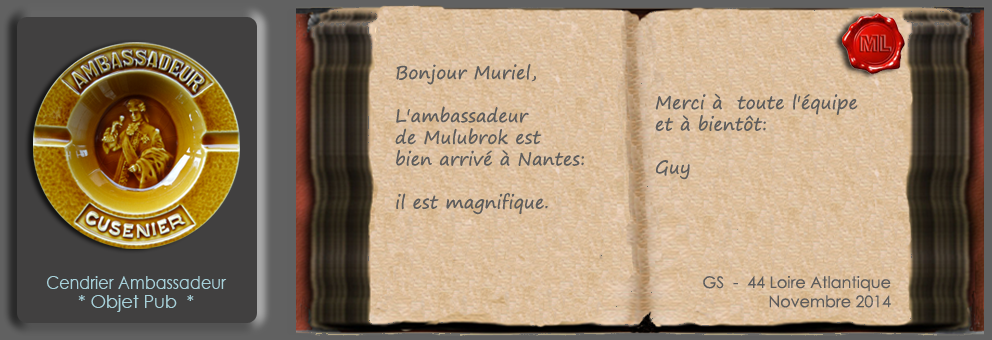 AMBASSADEUR
CUSENIER
Cendrier Ambassadeur
* Objet Pub *
Bonjour Muriel,
L'ambassadeur
de Mulubrok est
bien arrivé à Nantes:
il est magnifique.
Merci à toute l'équipe
et à bientôt:
Guy
ML
GS - 44 Loire Atlantique
Novembre 2014